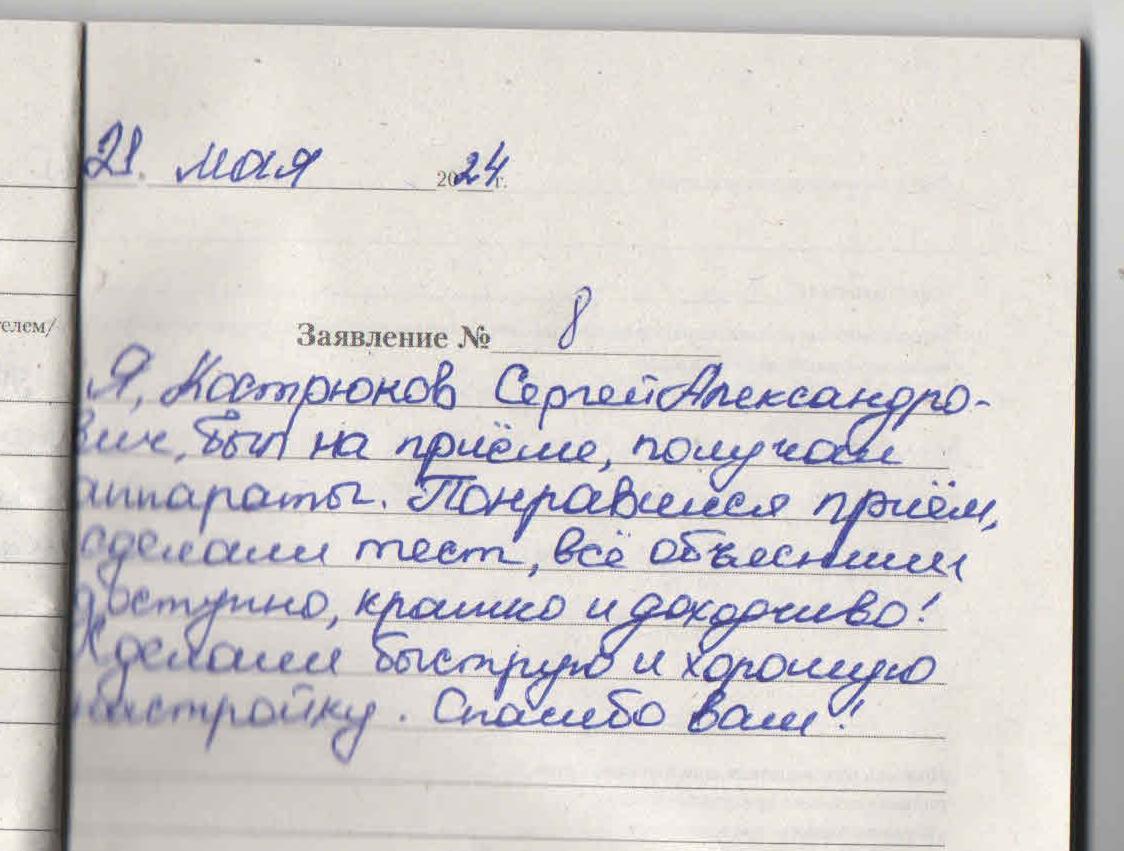 21. мая 2024г.
телем/
Заявление № 8
Я, Кострюков Сергей Александро-
вич, был на приёме, получал
аппараты. Понравился приём,
сделали тест, всё объяснили
доступно, кратко и доходчиво!
Сделали быструю и хорошую
настройку. Спасибо вам!